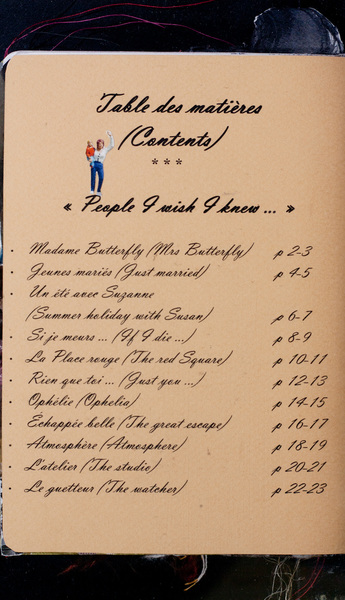 Table des matières
(Contents)
***
« People I wish I knew ... »
· Madame Butterfly (Mrs Butterfly) p 2-3
· Jeunes mariés (Just married) p 4-5
· Un été avec Suzanne
(Summer holiday with Susan) p 6-7
· Si je meurs ... (If I die ...) p 8-9
· La Place rouge (The red Square) p 10-11
· Rien que toi ... (Just you ...) p 12-13
· Ophélie (Ophelia) p 14-15
· Échappée belle (The great escape) p 16-17
· Atmosphère (Atmosphere) p 18-19
· L'atelier (The studio) p 20-21
· Le guetteur (The watcher) p 22-23